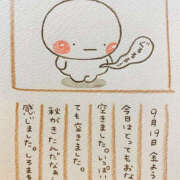 9月19日(金よう
今日はとってもおな
空きました。いっぱい
ても空きました。
秋がきたんだなぁ
感じました。しろまる